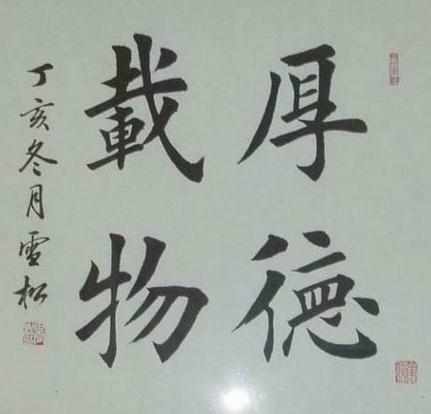 厚德
載物
丁亥冬月雪松